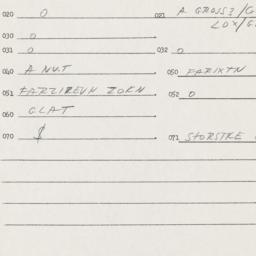 020 0 021 A GROSS? /G
LOX/G
030 0
031 0 032 0
040 A NUT 050 FARIXTN
051 FARZIREVN ZORN 052 0
060 GLAT
070 $ 071 STORSTKE